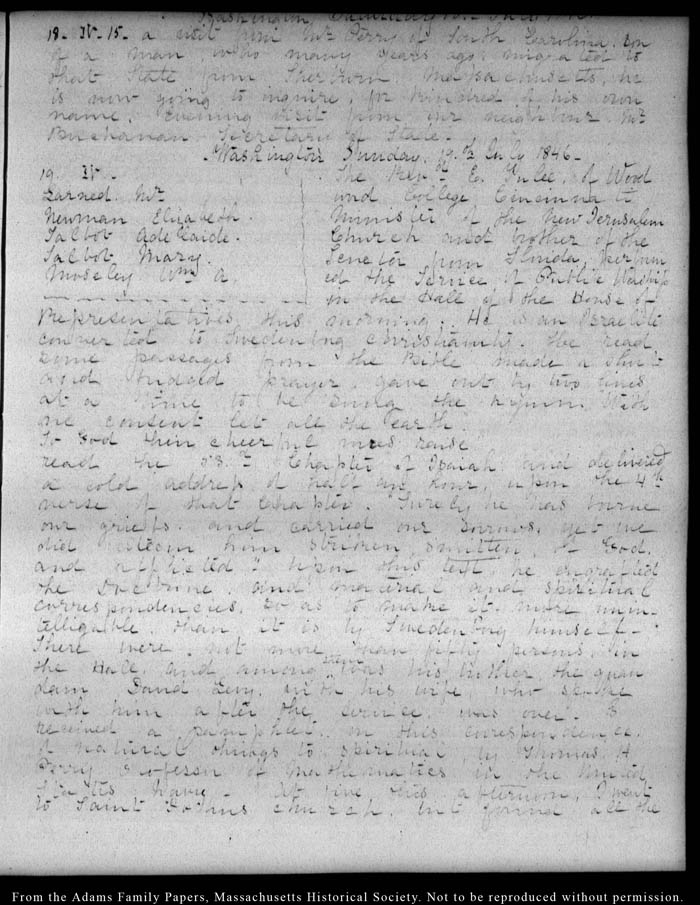 Washington, Saturday 18. July 1846.
18. IV. 15. a visit from Mr Perry of South Carolina, son
of a man who many years ago migrated to
that State from Sherborn Massachusetts, he
is now going to inquire, for kindred of his own
name. Evening visit from our neighbour Mr
Buchanan Secretary of State.
Washington Sunday. 19. th July 1846-
19. IV.
Larned Mr
Newman Elizabeth.
Talbot Adelaide.
Talbot Mary.
Moseley Wm A.
The Revd E. Yulee, of Wood
and College, Cincinnati
Minister of the New Jerusalem
Church and brother of the
Senator from Florida, perform
ed the Service, of Public Worship
in the Hall of the House of
Representatives, this morning. He is an Israelite
converted to Swedenborg Christianity. He read
some passages from the Bible made a short
and prayer, gave out by two lines
at a time to be sung the hymn. With
one consent let all the earth
To God their cheerful voices raise
read the 53. rd Chapter of Isaiah and delivered
a cold address of half an hour, upon the 4th
verse of that Chapter. "Surely he has borne
our griefs and carried our sorrows, yet we
did esteem him stricken, smitten of God.
and afflicted." Upon this text he engrafted
the Doctrine, and material and spiritual
correspondencies, so as to make it more unin-
telligable, than it is by Swedenborg himself-
There were, not more than fifty persons, in
the Hall, and among them was his brother, the quon
dam David Levy, with his wife, who spoke
with him after the service was over. I
received a pamphlet, on this correspondence.
of natural things to spiritual, by Thomas H
Perry Professor of Mathematics in the United
States Navy- At five this afternoon, I went
to Saint Johns church, but found all the
From the Adams Family Papers, Massachusetts Historical Society. Not to be reproduced without permission.